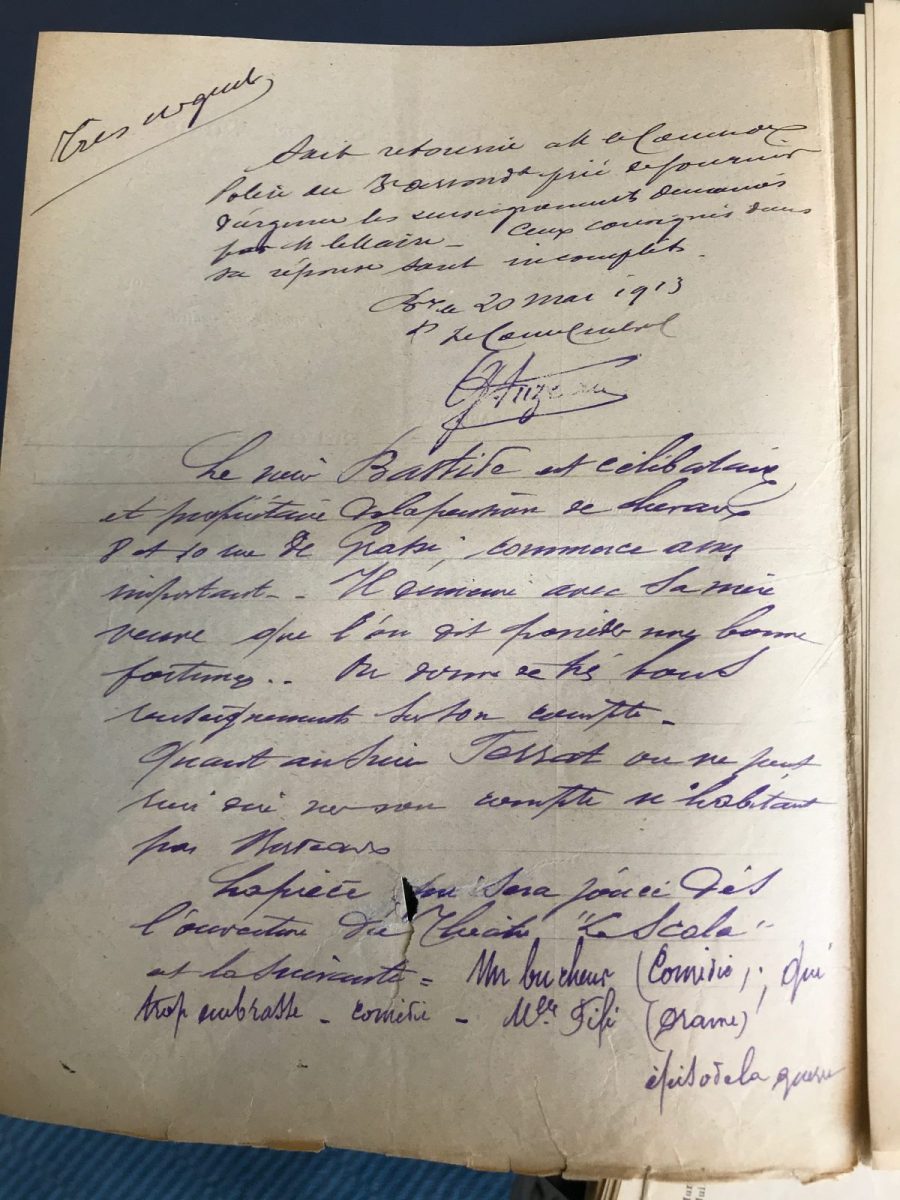 Très urgent
Soit retourné à M. le Commre
Police du prié de fournir
d'urgence les renseignements demandés
par M le Maire _ Ceux consignés dans
sa réponse sont incomplets.
Bx le 20 Mai 1913
Le Comre Central
Le sieur Bastide est célibataire
et propriétaire de la pension de chevaux
8 et 10 rue de ; commerce assez
important _ Il demeure avec sa mère
veuve que l'on dit posséder une bonne
fortune .. On donne de très bons
renseignements sur son compte _
Quant au sieur Terrat on ne peut
rien dire sur son compte n'habitant
pas Bordeaux
La pièce qui sera jouée dès
l'ouverture du Théâtre "La Scala"
est la suivante = Un bucheur (Comédie); qui
trop embrasse _ comédie _ Mlle Fifi (Drame)
épisode la guerre